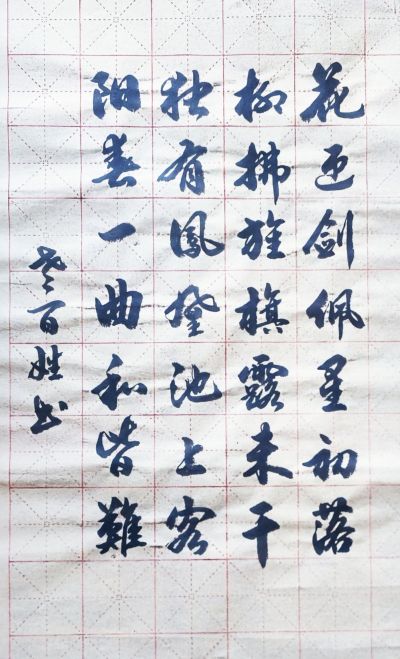 花迎剑佩星初落
柳拂旌旗露未干
独有鳳凰池上客
阳春一曲和皆難
老百姓书